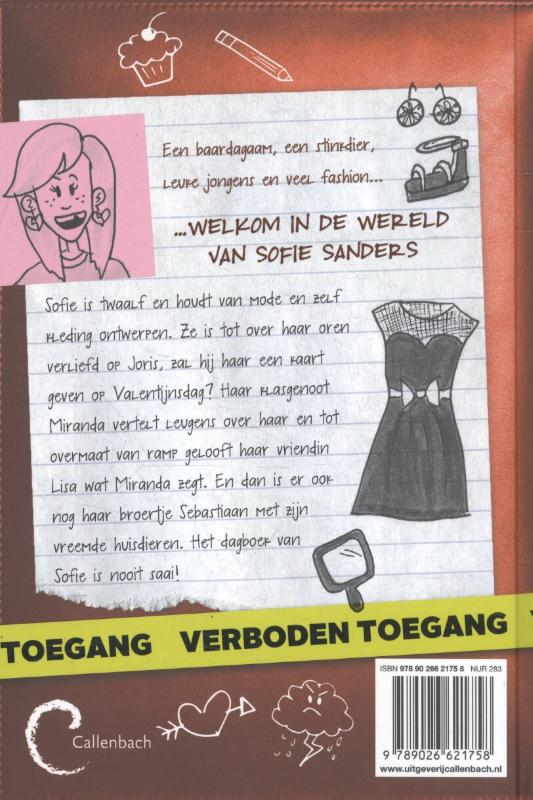 Een baardagaam, een stinkdier,
leuke jongens en veel fashion...
...WELKOM IN DE WERELD
VAN SOFIE SANDERS
Sofie is twaalf en houdt van mode en zelf
kleding ontwerpen. Ze is tot over haar oren
verliefd op Joris, zal hij haar een kaart
geven op Valentijnsdag? Haar klasgenoot
Miranda vertelt leugens over haar en tot
overmaat van ramp gelooft haar vriendin
Lisa wat Miranda zegt. En dan is er ook
nog haar broertje Sebastiaan met zijn
vreemde huisdieren. Het dagboek van
Sofie is nooit saai!
TOEGANG VERBODEN TOEGANG
ISBN 978 90 266 2175 8 NUR 283
Callenbach
9 789026 621758
www.uitgeverijcallenbach.nl